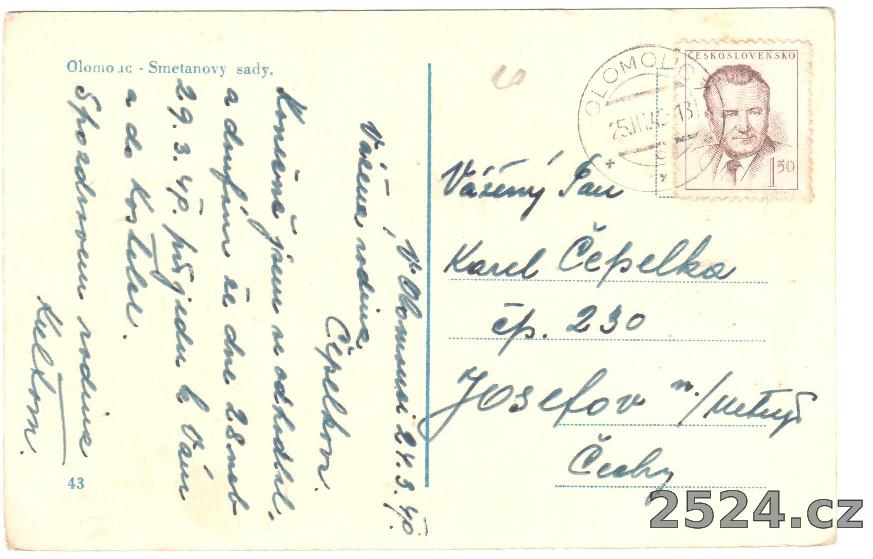 Olomouc - Smetanovy sady.
V Olomouci 24.3.49.
Vážená rodina,
Čepelkova.
Konečně jsem se odhodlal.
a doufám že dne 28 neb
29.3.49. přijedu k Vám
a do Kostelce.
S pozdravem rodina
43
OLOMOUC
ČESKOSLOVENSKO
1 50
Vážený Pan
Karel Čepelka
čp. 230
Josefov n/Metují
Čechy
2524.cz